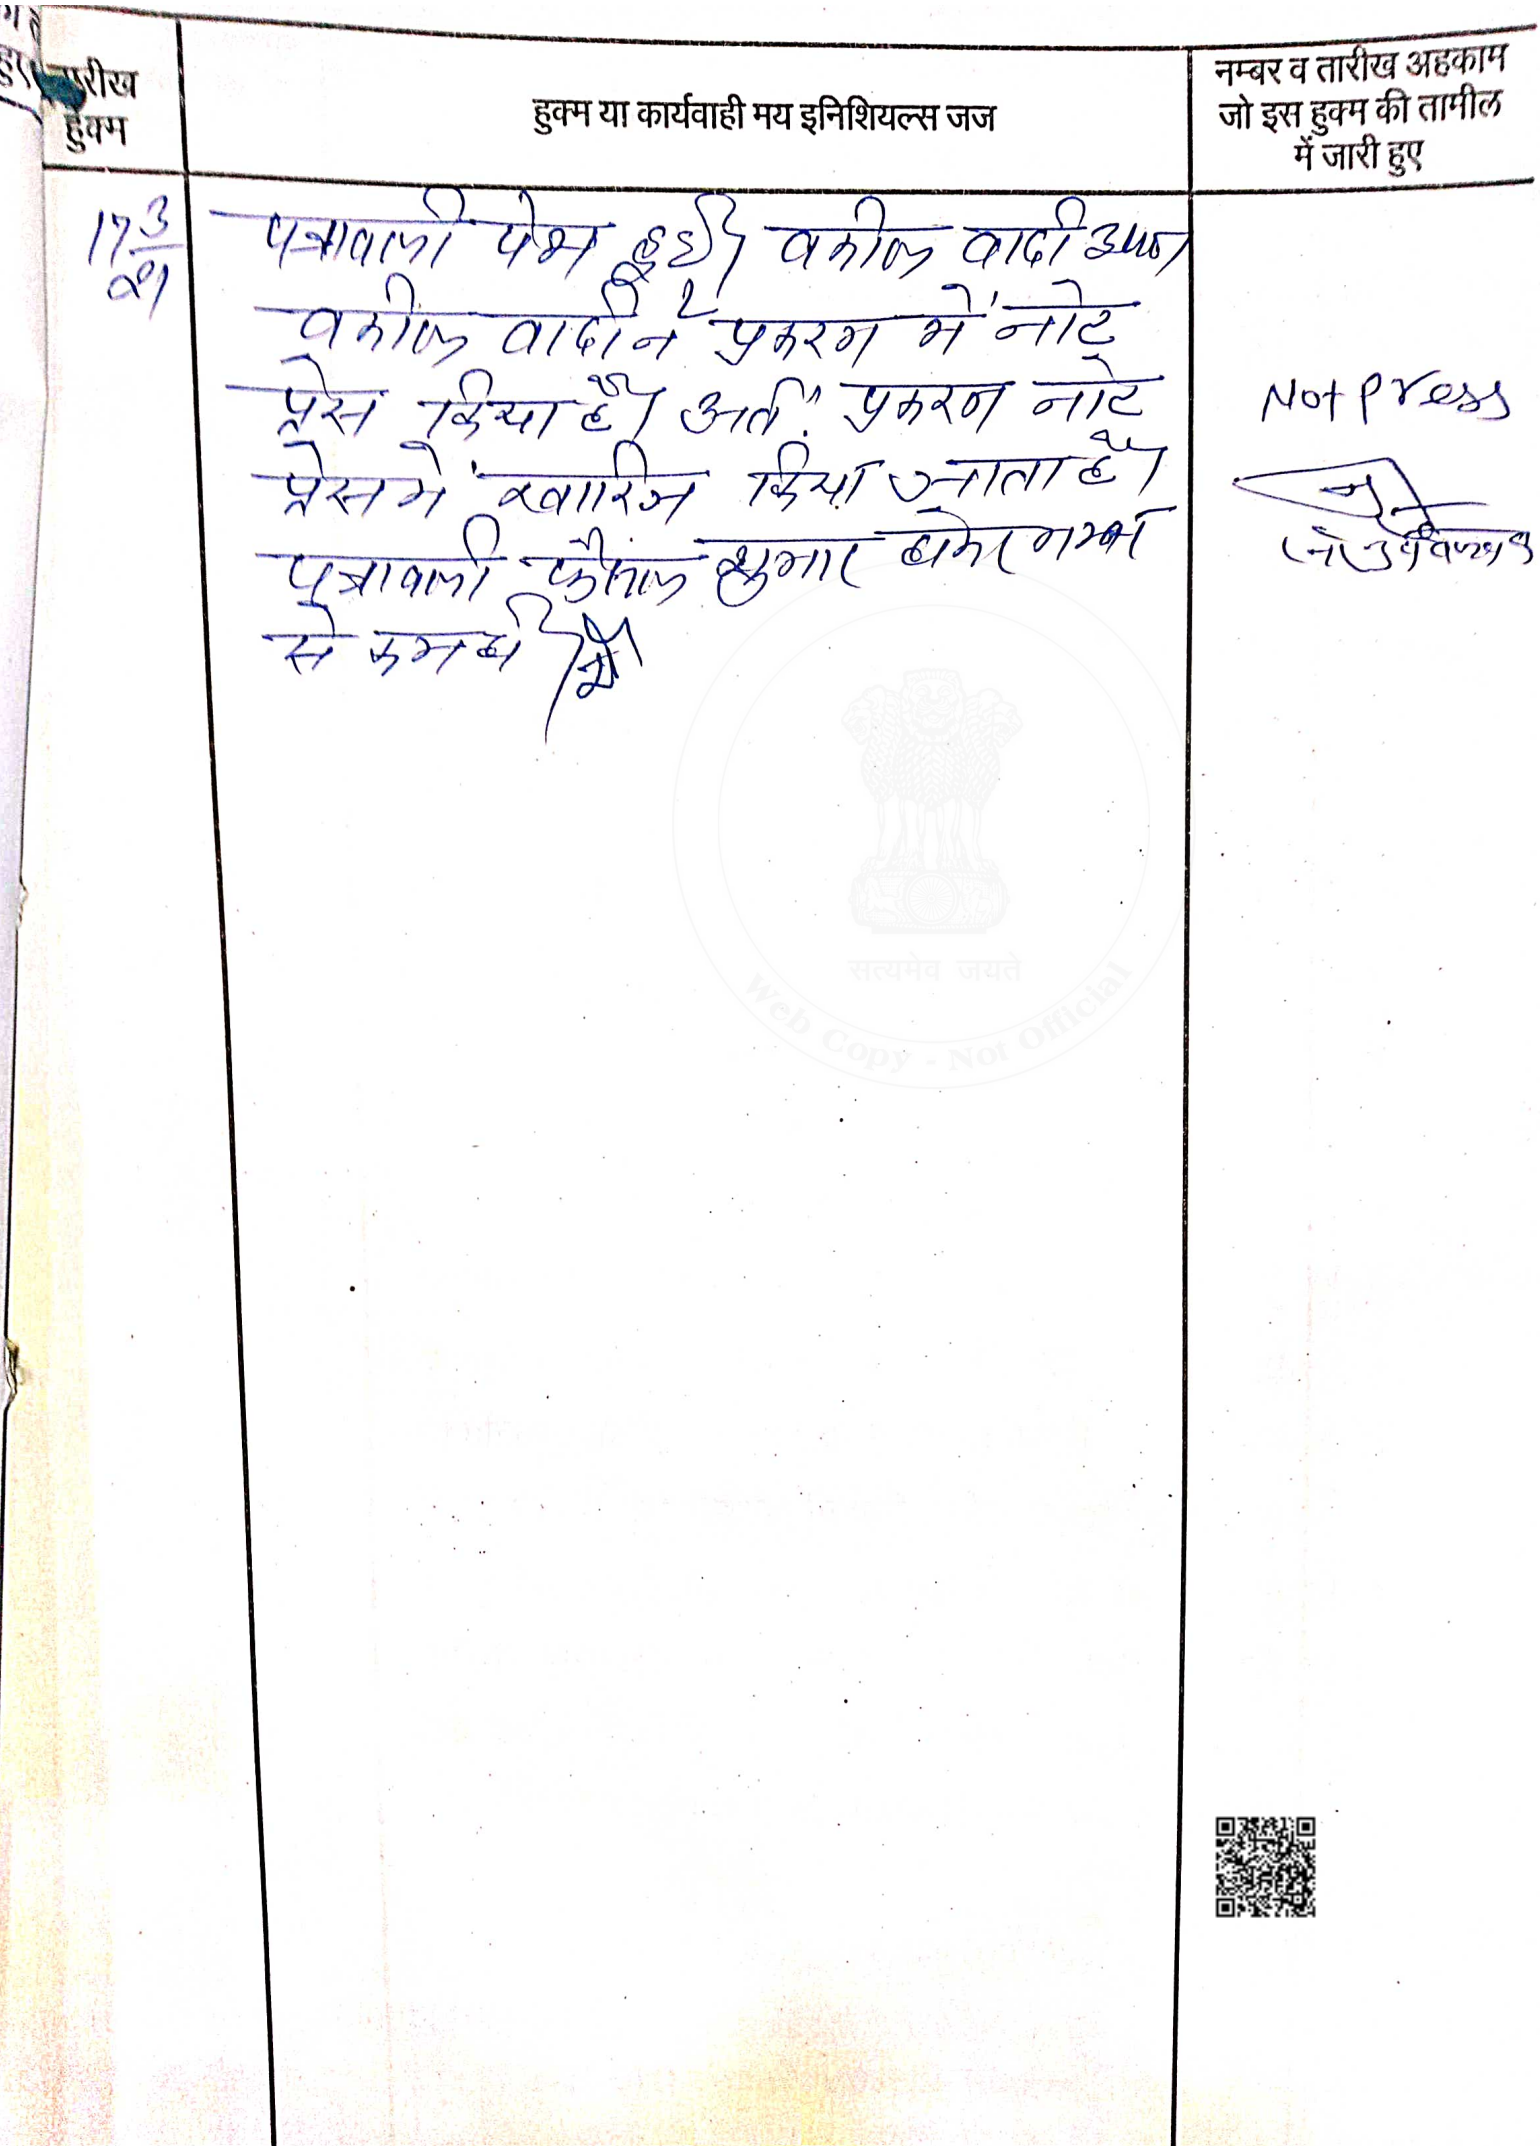 तारीख
हुक्म
हुक्म या कार्यवाही मय इनिशियल्स जज
नम्बर व तारीख अहकाम
जो इस हुक्म की तामील
में जारी हुए
17/3/21
पत्रावली पेश हुई। वकील वादी उप०।
वकील वादी ने प्रकरण में नोट
प्रेस किया है। अतः प्रकरण नोट
प्रेस में खारिज किया जाता है।
पत्रावली फैसल शुमार होकर नम्बर
से कम हो।
Not press
सत्यमेव जयते
Web Copy - Not Official